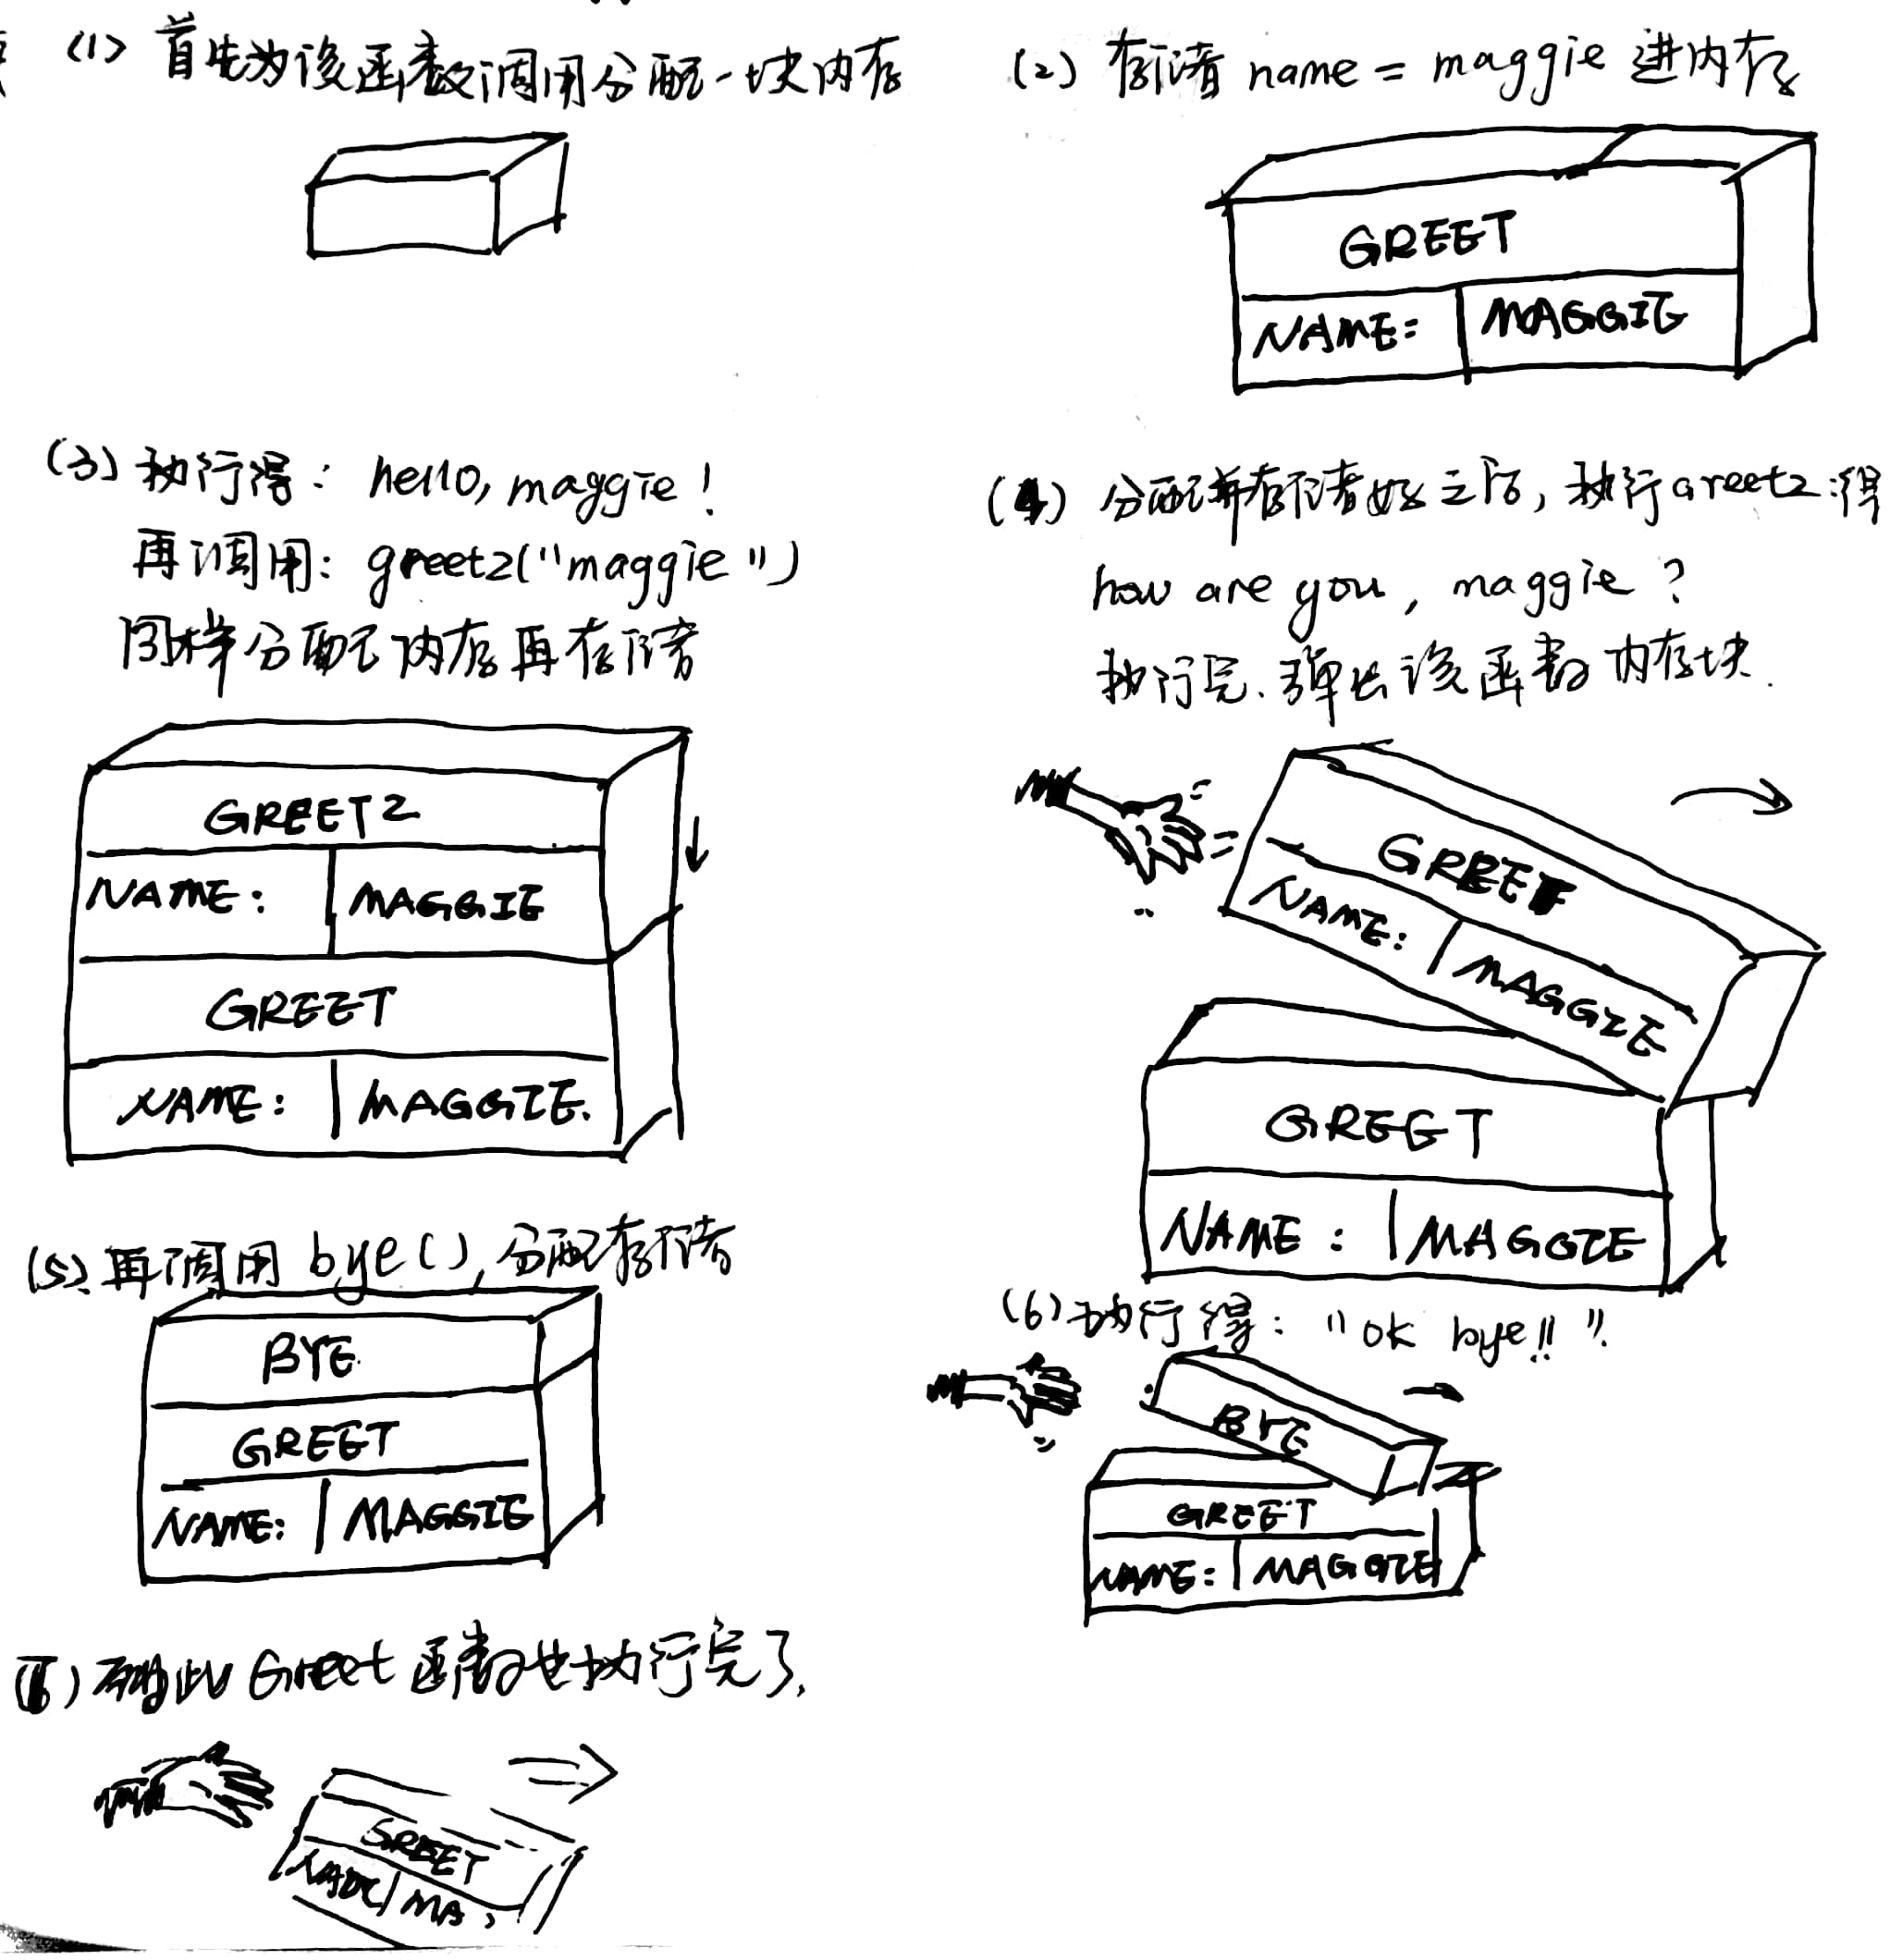 (1) 首先为该函数调用分配一块内存
(2) 存储 name = maggie 进内存
GREET
NAME: MAGGIE
(3) 执行得: hello, maggie!
再调用: greet2("maggie")
同样分配内存再存储
GREET2
NAME: MAGGIE
GREET
NAME: MAGGIE.
(4) 分配并存储好之后, 执行Greet2:得
how are you, maggie ?
执行完、弹出该函数内存块.
GREET
NAME: MAGGIE
GREET
NAME: MAGGIE
(5)、再调用 bye(), 分配存储
BYE.
GREET
NAME: MAGGIE
(6) 执行得: "ok bye!!".
BYE
GREET
NAME: MAGGIE
Greet 函数也执行完了.
GREET
NAME MA